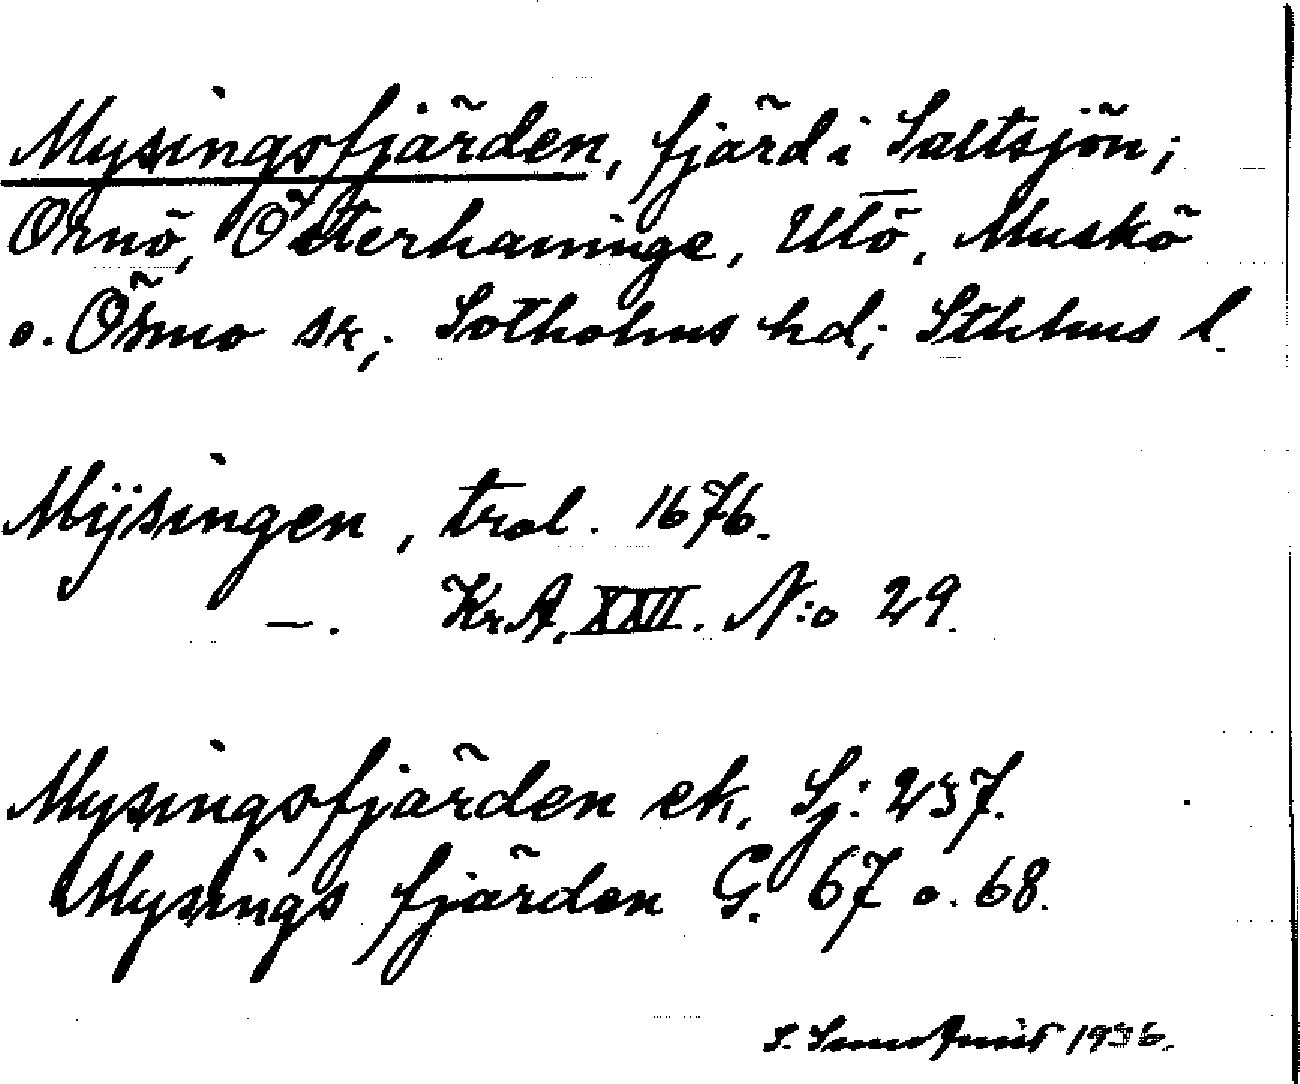 Mysingsfjärden, fjärd i Saltsjön;
Ornö, Österhaninge, Utö, Muskö
o. Ösmo sk; Sotholms hd; Sthlms l.
Mÿsingen, trol. 1676.
—. Kr.A. XXII. N:o 29.
Mysingsfjärden ek. Sj: 237.
Mysings fjärden G. 67 o. 68.
S. 1936.